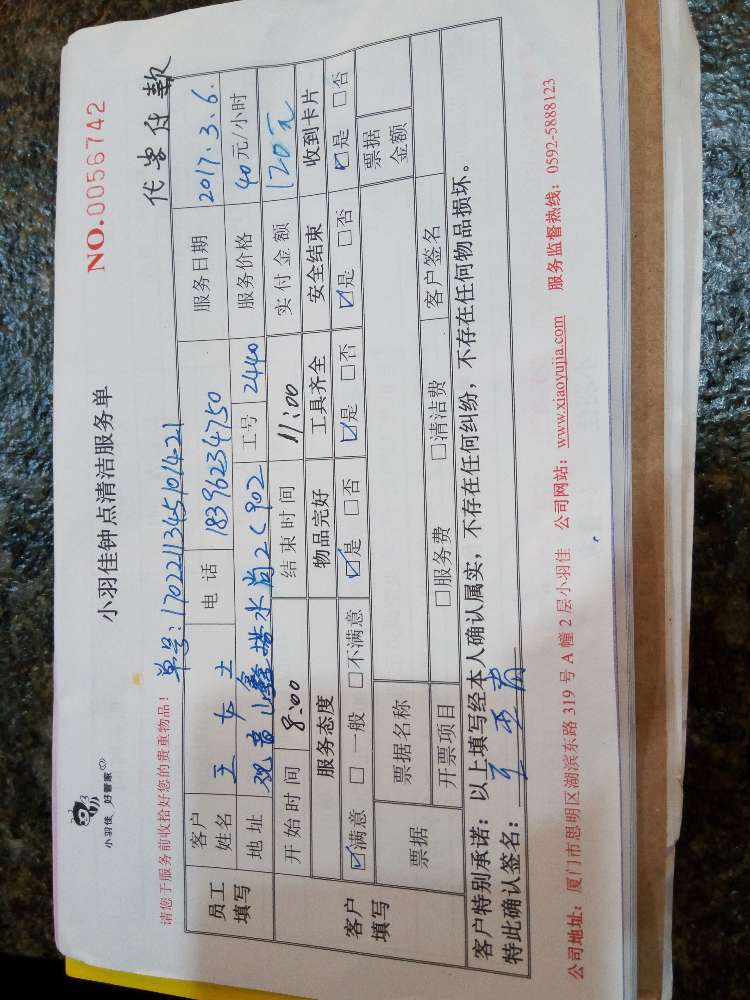 小羽佳 好管家
小羽佳钟点清洁服务单
NO.0056742
请您于服务前收拾好您的贵重物品!
单号:17022113451014-21
代客付款
员工填写 客户姓名 王女士 电话 18396234750 服务日期 2017.3.6.
地址 观音山 水尚 2C902 工号 2440 服务价格 40元/小时
客户填写 开始时间 8:00 结束时间 11:00 实付金额 120元
服务态度 物品完好 工具齐全 安全结束 收到卡片
☑满意 □一般 □不满意 ☑是 □否 ☑是 □否 ☑是 □否 ☑是 □否
票据 票据名称 票据金额
开票项目 □服务费 □清洁费 客户签名
客户特别承诺:以上填写经本人确认属实,不存在任何纠纷,不存在任何物品损坏。
特此确认签名:
公司地址:厦门市思明区湖滨东路319号A幢2层小羽佳 公司网站:www.xiaoyujia.com 服务监督热线:0592-5888123